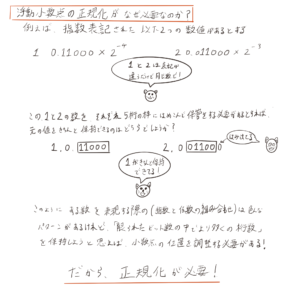 浮動小数点の正規化がなぜ必要なのか?
例えば 指数表記された 以下2つの数値があるとする
1 0.11000 × 2⁻⁴ 2 0.011000 × 2⁻³
1と2は表記が
違うけど同じ数だ!
この1と2の数を、それぞれ5桁の枠にはめこんで保管する必要があるとすれば、
元の値をきちんと保持できるのはどちらでしょうか?
1. 0. 11000 2. 0 01100 0
はみ出てる!
1がきちんと保持
できてる!
このように ある数を表現する際の(指数と仮数の組み合わせ)は色んな
パターンがあるけれど、「限られたビット数の中でより多くの桁数」
を保持しようと思えば、小数点の位置を調整する必要がある!
だから、正規化が必要!